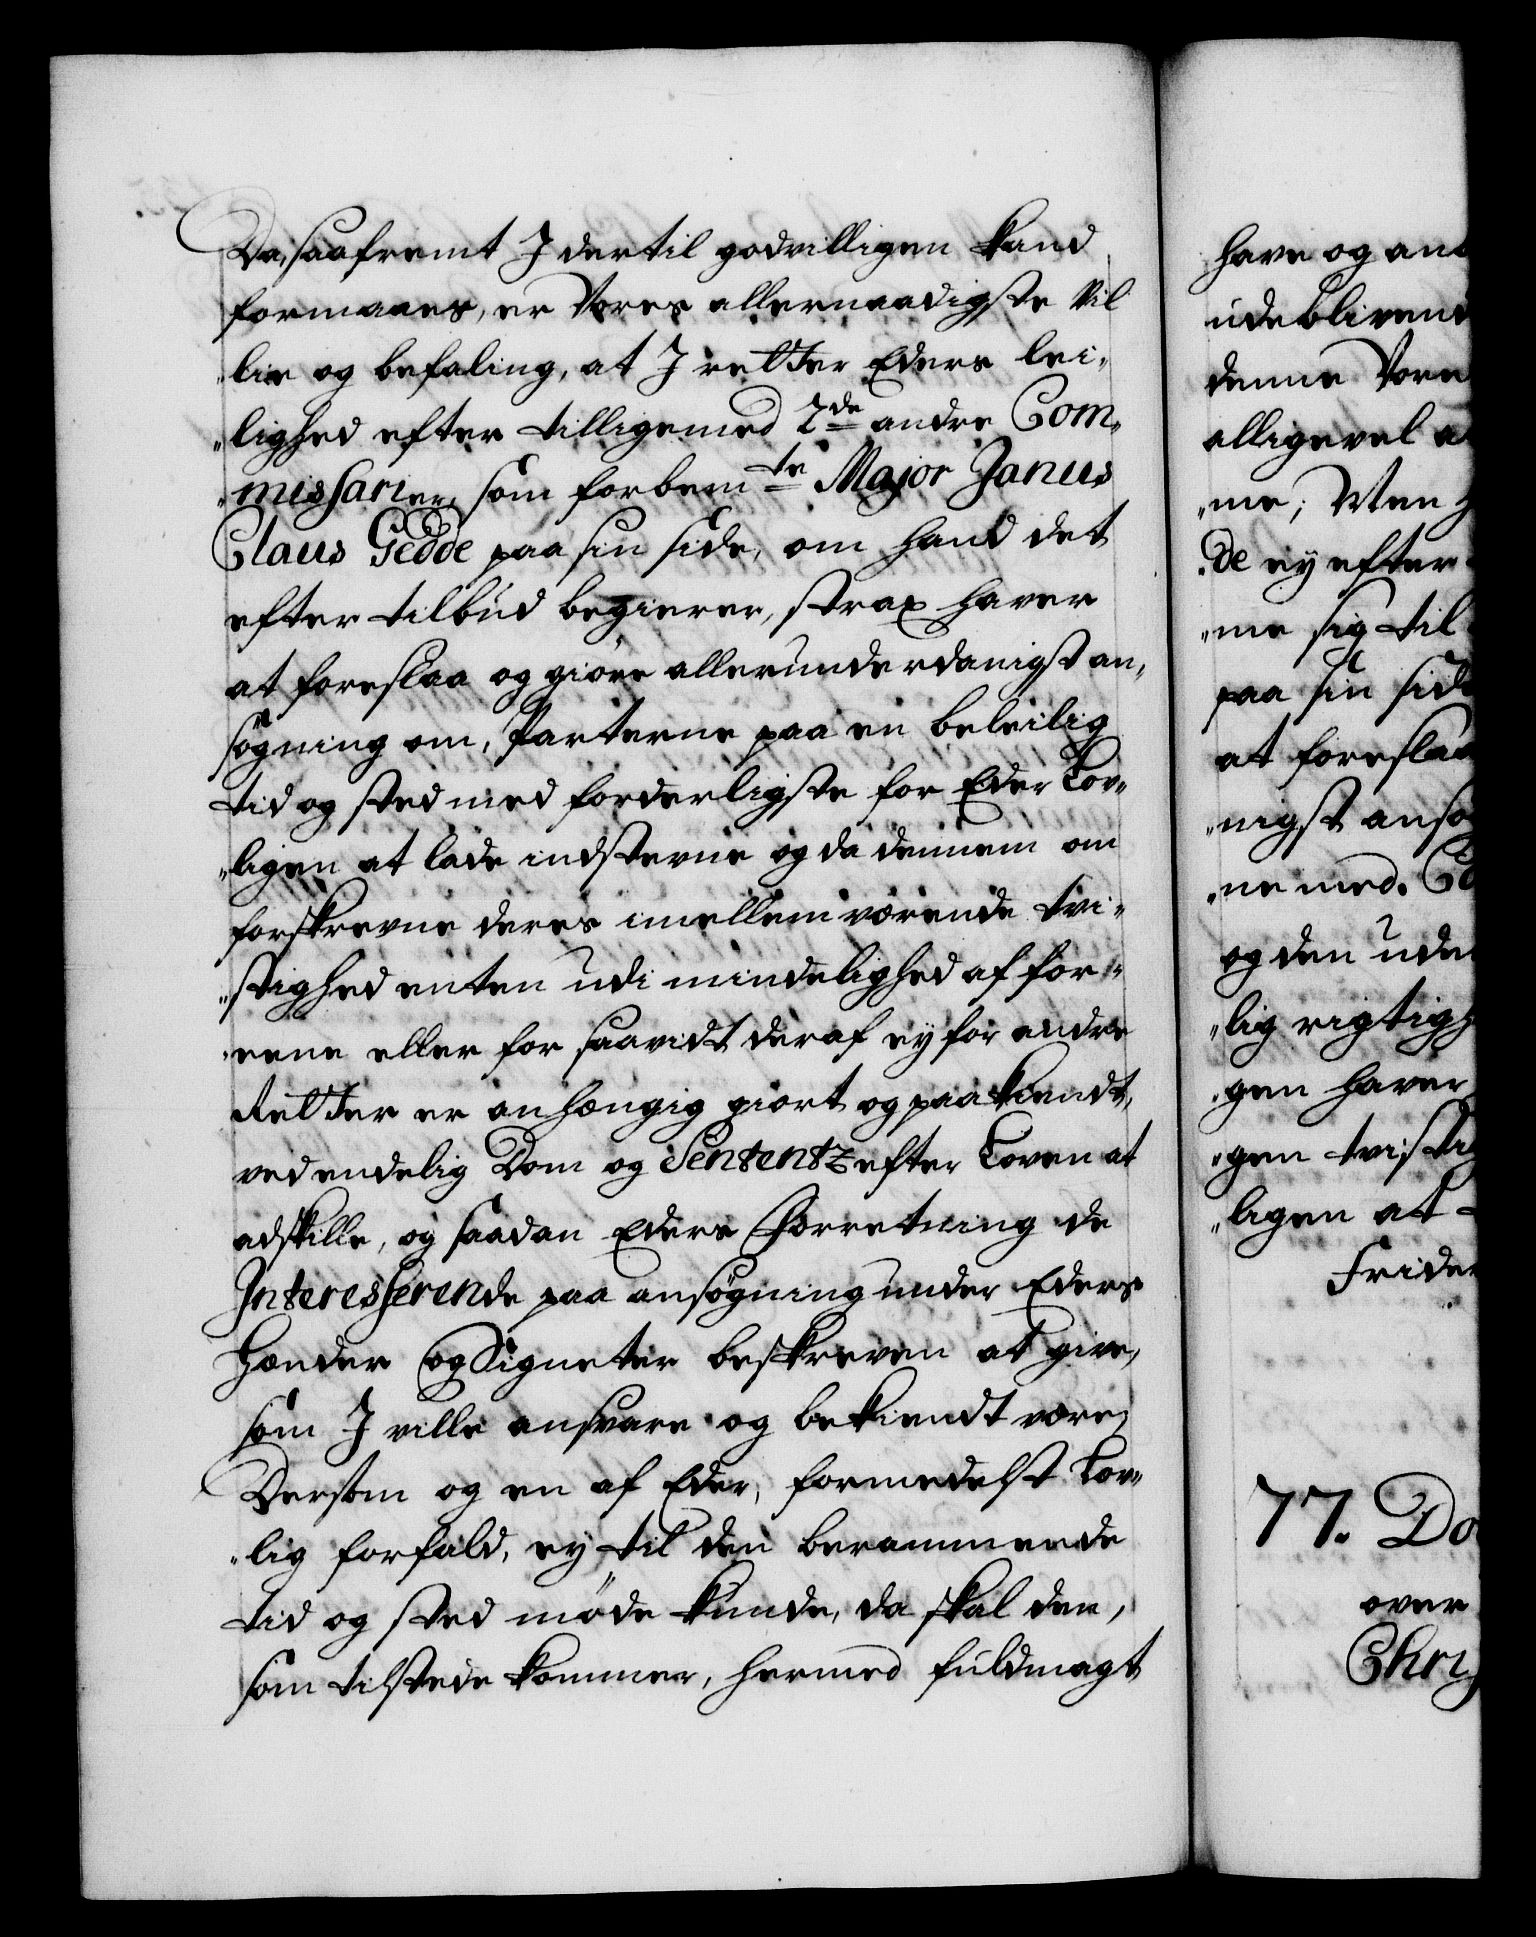 Da, saafremt I dertil godvilligen kand
formaaes, er Vores allernaadigste Vil
„lie og befaling, at I retter Eders lei„
„lighed efter tilligemed 2de andre Com„
„missarier, som forbemte Major Janus
Claus Gedde paa sin side, om hand det
efter tilbud begierer, strax haver
at foreslaa og giöre allerunderdanigst an„
søgning om, Parterne paa en beleilig
tid og sted med forderligste for Eder Lov„
„ligen at lade indstevne og da dennem om
forskrevne deres imellem værende tvi„
„stighed enten udi mindelighed af for„
„eene eller for saavidt deraf ey for andre
Retter er anhængig giort og paakiendt,
ved endelig Dom og Sententz efter Loven at
adskille, og saadan Eders Forretning de
Interesserende paa ansøgning under Eders
Hænder og Signeter beskreven at give,
som I ville ansvare og bekiendt være;
Dersom og en af Eder, formedelst Lov„
„lig forfald, ey til den berammede
tid og sted møde kunde, da skal den,
som tilstede kommer, hermed fuldmagt
have og an
udeblivend
denne Vore
alligevel a
„me; Men
„de ey efter
„me sig til
paa sin sid
at foreslaa
„nigst ansø
„ne med. Co
og den ude
„lig rigtigh
„gen haver
„gen tvisti
„ligen at
Frider
77. Do
over
Chri